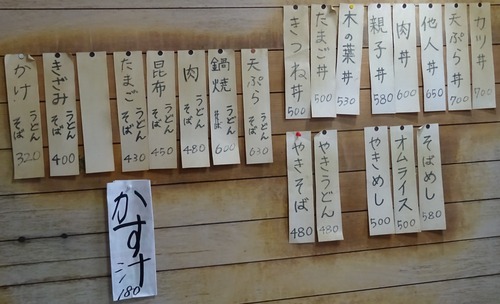 カツ丼 700
天ぷら丼 700
他人丼 650
肉丼 600
親子丼 580
木の葉丼 530
たまご丼 500
きつね丼 500
天ぷら うどん そば 630
鍋焼 うどん そば 600
肉 うどん そば 480
昆布 うどん そば 450
たまご うどん そば 430
きざみ うどん そば 400
かけ うどん そば 320
そばめし 580
オムライス 500
やきめし 500
やきうどん 480
やきそば 480
かす汁 180